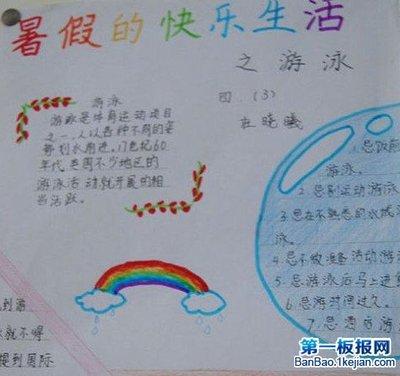 暑假的快乐生活
之游泳
四.(3)
游泳
游泳是体育运动项目
之一,人以各种不同的姿
势划水前进,17世纪60
年代,英国不少地区的
游泳活动就开展的相
当活跃。
1.忌饭前
游泳。
2.忌剧运动游泳
3.忌在不熟悉的水域游
泳。
4.忌不做准备活动游
5.忌游泳后马上进
6.忌游时间过久。
7.忌酒后游
到游
就不得
提到国际
第一板报网
BanBao.1kejian.com